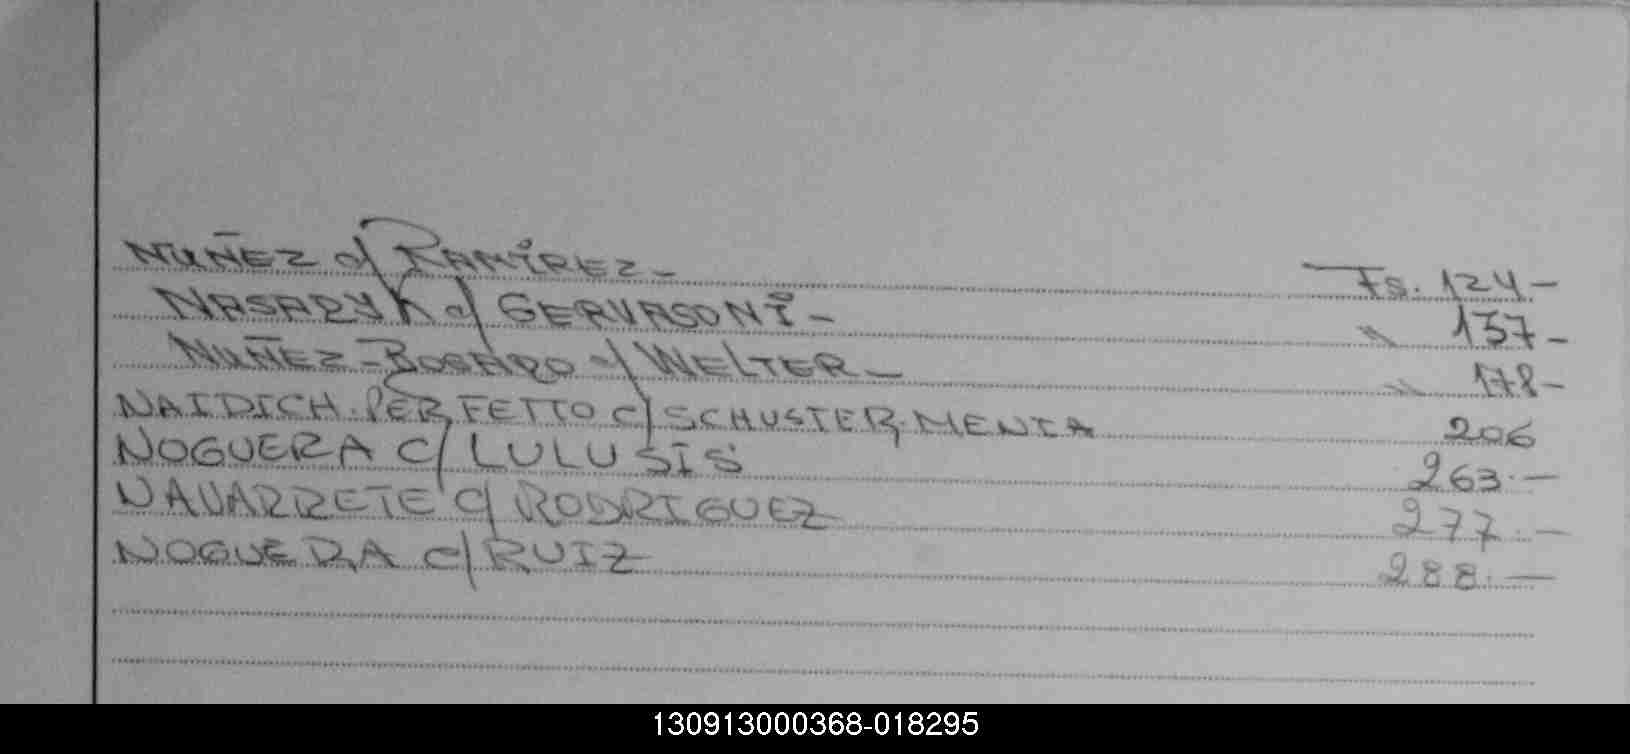 NUÑEZ c/ RAMÍREZ - Fs. 124 -
NASARYK c/ GERVASONI - " 137 -
NUÑEZ - BOGARO c/ WELTER - " 178 -
NAIDICH. PERFETTO c/ SCHUSTER. MENTA 206
NOGUERA c/ LULUSIS 263. -
NAVARRETE c/ RODRIGUEZ 277. -
NOGUERA c/ RUIZ 288. -
130913000368-018295